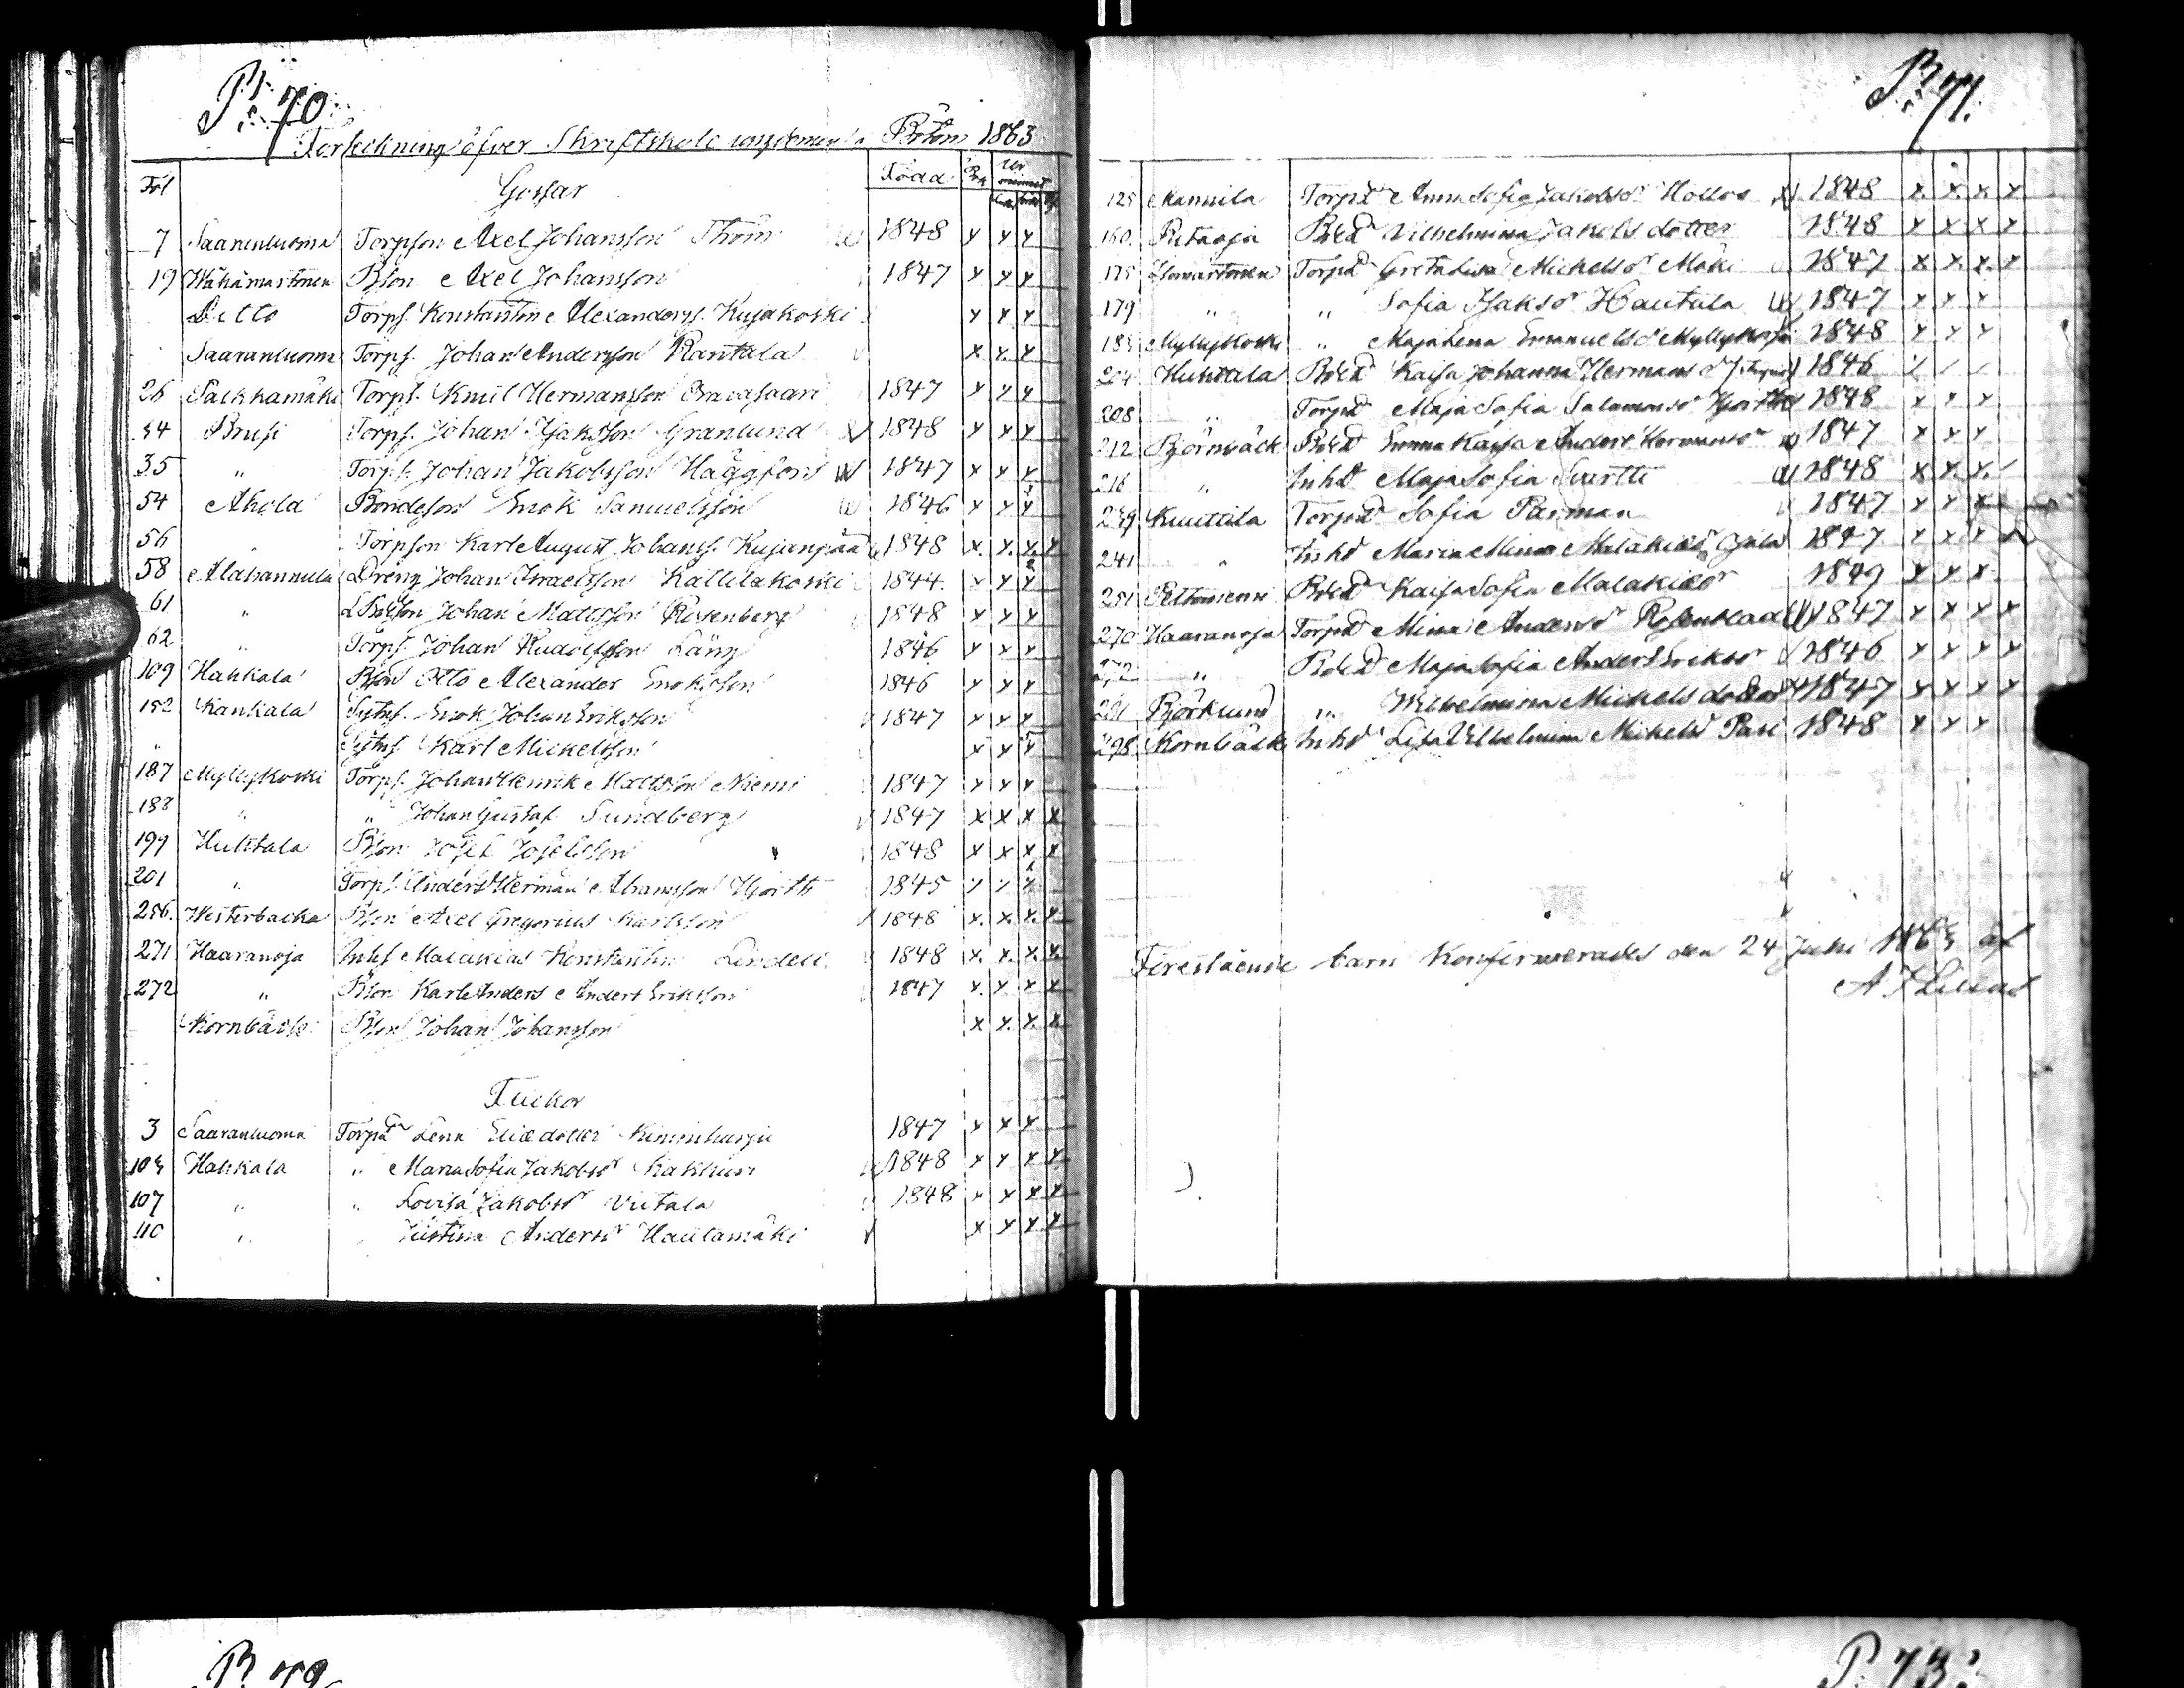 P. 70.
Förteckning öfver Skriftskole ungdomen i Bötom 1863
Fol Gossar Född
7 Saaranluoma Torpson Axel Johansson Thöm 1848 x x x
19 Wähämartonen Bson Axel Johansson 1847 x x x
Ditto Torps. Konstantin Alexanders. Kujakoski x x x
Saaranluoma Torps. Johan Andersson Rantala x x x
26 Torps. Emil Hermansson 1847 x x x
34 Brusi Torps. Johan Isaksson Granlund 1848 x x x
35 " Torps. Johan Jakobsson Häggfors 1847 x x x
54 Ahola Bondeson Enok Samuelsson 1846 x x x
56 " Torpson Karl August Johans. Kujanpää 1848 x x x x
58 Alahannula Dreng Johan Israelsson Kallilakoski 1844 x x x
61 " Johan Mattsson Rosenberg 1848 x x x
62 " Torps. Johan Rudolfsson Läng 1846 x x x
109 Hakkala Bson Otto Alexander Enoksson 1846 x x x
152 Kankala Sytns. Enok Johan Eriksson 1847 x x x
" Sytns. Karl Mickelsson x x x
187 Myllykoski Torps. Johan Henrik Mattsson Niemi 1847 x x x
188 " " Johan Gustaf Sundberg 1847 x x x x
199 Huhtala Bson Josef Josefsson 1848 x x x x
201 " Torps. Anders Herman Abramsson Hjorth 1845 x x x
256. Westerbacka Bson Axel Gregorius Karlsson 1848 x x x x
271 Haaranoja Inhs Malakias Konstantin Lindell 1848 x x x x
272 " Bson Karl Anders Anders Eriksson 1847 x x x x
Kornbäck Bson Johan Johansson x x x x
Flickor
3 Saaranluoma Torpd Lena Eliedotter Kiminharju 1847 x x x
Hakkala " Maria Sofia Jakobsd 1848 x x x x
107 " " Lovisa Jakobsd Viitala 1848 x x x x
110 " Justina Andersd Hautamäki x x x x
P. 71.
125 Mannila Torpd Anna Sofia Jakobsd Hollos 1848 x x x x
160. Riitaoja Bded Vilhelmina Jakobsdotter 1848 x x x x
175 Torpd Greta Lisa Mickelsd Mäki 1847 x x x x
179 " " Sofia Isaksd Hautala 1847 x x x
Myllykoski " Maja Lena Emanuelsd 1848 x x x
204 Huhtala Bded Kaisa Johanna Hermansd 1846 / / /
208 " Torpd Maja Sofia Salomonsd Hjorth 1848 x x x
212 Björnbäck Bded Emma Kaisa Anders Hermansd 1847 x x x
216 " Inhd Maja Sofia 1848 x x x
239 Kuuttila Torpd Sofia Parman 1847 x x x
241 " Inhd Maria Mina Malakiasd 1847 x x x
251 Bded Kaisa Sofia Malakiasd 1849 x x x
270 Haaranoja Torpd Mina Andersd Rosenblad 1847 x x x x
272 " Bded Maja Sofia Anders Eriksd 1846 x x x x
291 Björklund " Wilhelmina Mickelsdotter 1847 x x x x
298 Kornbäck Inhd Lisa Vilhelmina Mickelsd Pasi 1848 x x x
Förestående barn Konfirmerades den 24 1863 af
P. 73.